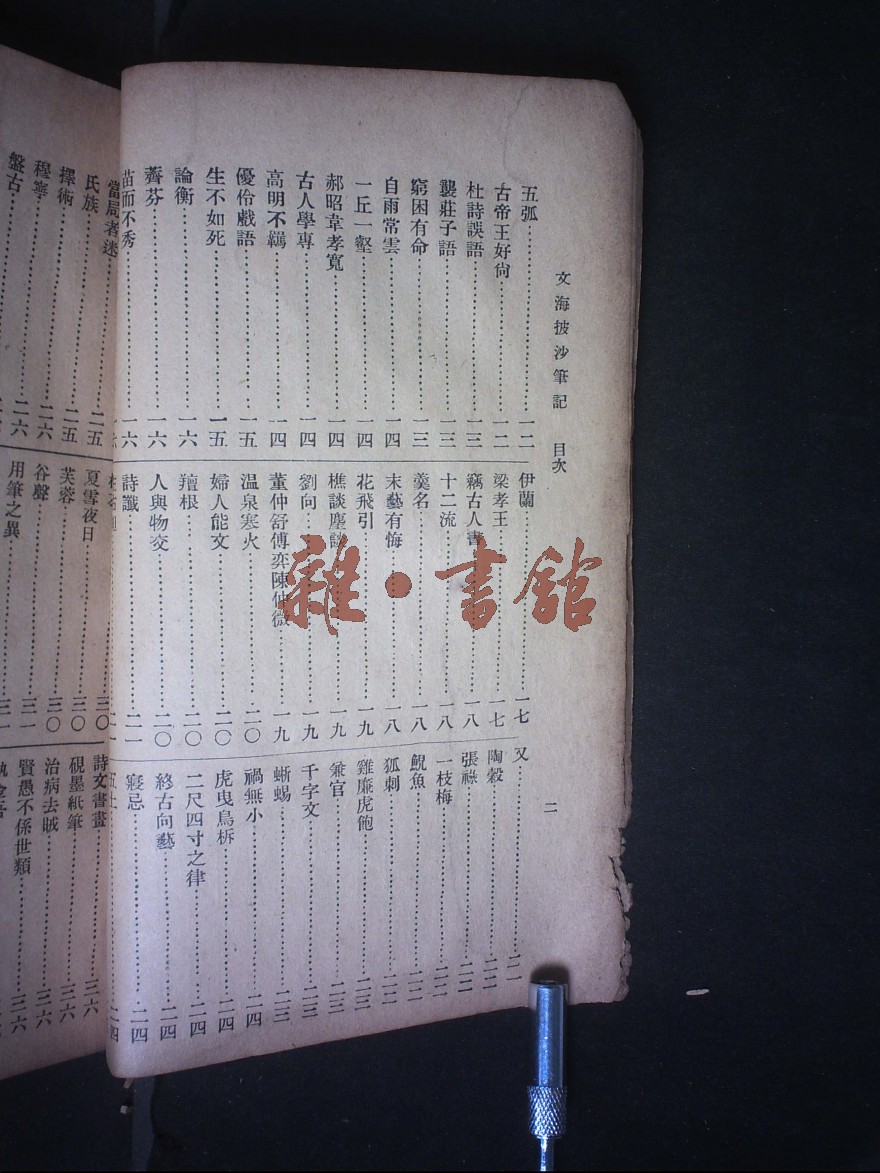 文海披沙筆記 目次 二
五弧 一二
古帝王好尙 一二
杜詩誤語 一三
襲莊子語 一三
窮困有命 一三
自雨常雲 一四
一丘一壑 一四
郝昭韋孝寬 一四
古人學專 一四
高明不羈 一四
優伶戲語 一五
生不如死 一五
論衡 一六
薺芬 一六
苗而不秀 一六
伊蘭 一七
梁孝王 一七
竊古人書 一八
十二流 一八
羹名 一八
末藝有悔 一八
花飛引 一九
樵談塵談 一九
劉向 一九
董仲舒傅奕陳仲微 一九
温泉寒火 二〇
婦人能文 二〇
羶根 二〇
人與物交 二〇
詩讖 二一
又 二一
陶穀 二二
張祿 二二
一枝梅 二二
鯢魚 二二
狐刺 二二
雞廉虎飽 二三
兼官 二三
千字文 二三
蜥蜴 二三
禍無小 二四
虎曳鳥柝 二四
二尺四寸之律 二四
終古向藝 二四
寢忌 二四
五土 二四
當局者迷
氏族 二五
擇術 二五
穆寧 二六
盤古 二六
夏雪夜日 三〇
芙蓉
谷聲 三〇
用筆之異 三一
詩文書畫 三六
硯墨紙筆 三六
治病去賊 三六
賢愚不係世類 三六
雜·書館